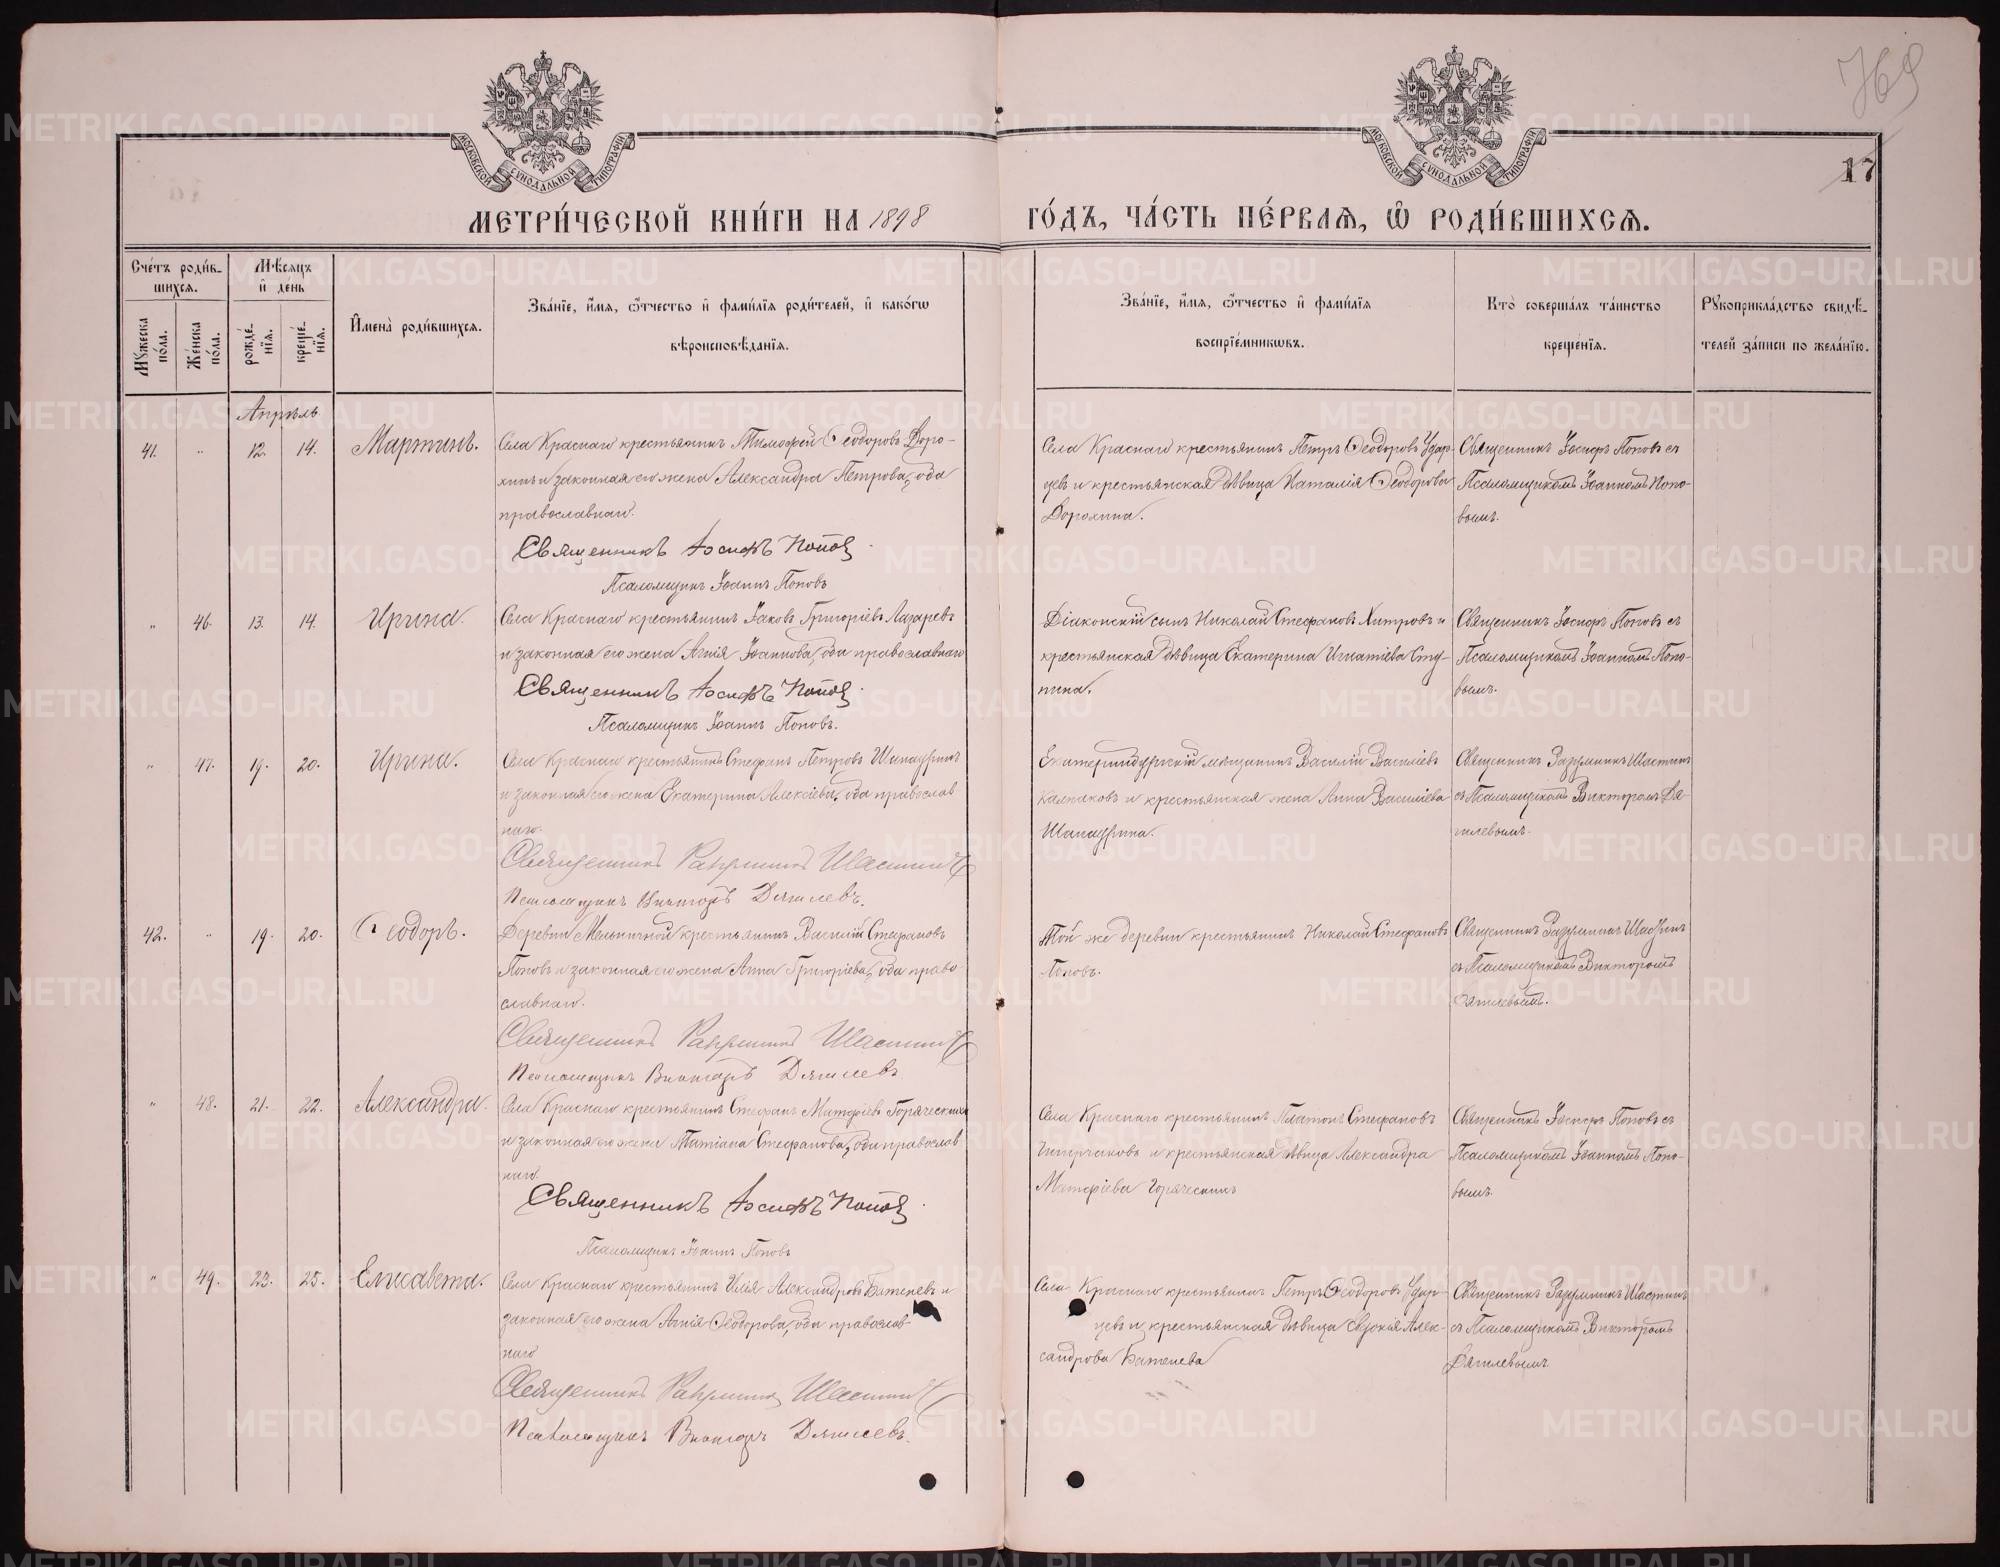 769
17
МОСКОВСКОЙ СѴНОДАЛЬНОЙ ТИПОГРАФІИ
МОСКОВСКОЙ СѴНОДАЛЬНОЙ ТИПОГРАФІИ
МЕТРИ́ЧЕСКОЙ КНИ́ГИ НА 1898 ГО́ДЪ, ЧА́СТЬ ПЕ́РВАѦ, Ѽ РОДИ́ВШИХСѦ.
Сче́тъ роди́в-
шихсѧ.
Мѣ́сѧцъ
и҆ де́нь
Мꙋ́жеска
по́ла.
Же́нска
по́ла.
рожде́-
нїѧ.
креще́-
нїѧ.
И҆мена̀ роди́вшихсѧ.
Зва́нїе, и҆́мѧ, ѻ҆́тчество и҆ фами́лїѧ роди́телей, и҆ како́гѡ
вѣроисповѣ́данїѧ.
Зва́нїе, и҆́мѧ, ѻ҆́тчество и҆ фами́лїѧ
воспрїе́мникѡвъ.
Кто̀ соверша́лъ та́инство
креще́нїѧ.
Рꙋкоприкла́дство свидѣ́-
телей за́писи по жела́нїю.
Апрѣль
41. " 12. 14. Мартинъ.
Села Краснаго крестьянинъ Тимофей Ѳеодоровъ Доро-
хинъ и законная его жена Александра Петрова, оба
православнаго.
Священникъ Іосифъ Поповъ.
Псаломщикъ Іоаннъ Поповъ
Села Краснаго крестьянинъ Петръ Ѳеодоровъ Удар-
цевъ и крестьянская дѣвица Наталія Ѳеодорова
Дорохина.
Священникъ Іосифъ Поповъ съ
Псаломщикомъ Іоанномъ Попо-
вымъ.
" 46. 13. 14. Ирина.
Села Краснаго крестьянинъ Іаковъ Григоріевъ Лазаревъ
и законная его жена Агнія Іоаннова, оба православнаго
Священникъ Іосифъ Поповъ.
Псаломщикъ Іоаннъ Поповъ.
Діаконскій сынъ Николай Стефановъ Хитровъ и
крестьянская дѣвица Екатерина Игнатіева Сту-
пина.
Священникъ Іосифъ Поповъ съ
Псаломщикомъ Іоанномъ Попо-
вымъ.
" 47. 19. 20. Ирина.
Села Краснаго крестьянинъ Стефанъ Петровъ Шипицынъ
и законная его жена Екатерина Алексіева, оба православ
наго.
Священникъ Разумникъ Шастинъ
Псаломщикъ Викторъ Дягилевъ.
Екатеринбургскій мѣщанинъ Василій Василіевъ
Калмаковъ и крестьянская жена Анна Василіева
Священникъ Разумникъ Шастинъ
съ Псаломщикомъ Викторомъ Дя-
гилевымъ.
42. " 19. 20. Ѳеодоръ.
Деревни Мельничной крестьянинъ Василій Стефановъ
Поповъ и законная его жена Анна Григоріева, оба право
славнаго.
Священникъ Разумникъ Шастинъ
Псаломщикъ Викторъ Дягилевъ
Той же деревни крестьянинъ Николай Стефановъ
Поповъ.
Священникъ Разумникъ Шастинъ
съ Псаломщикомъ Викторомъ
Дягилевымъ.
" 48. 21. 22. Александра.
Села Краснаго крестьянинъ Стефанъ Матфіевъ Горяческихъ
и законная его жена Татіана Стефанова, оба православ
наго.
Священникъ Іосифъ Поповъ.
Псаломщикъ Іоаннъ Поповъ
Села Краснаго крестьянинъ Платонъ Стефановъ
и крестьянская дѣвица Александра
Матфіева Горяческихъ
Священникъ Іосифъ Поповъ съ
Псаломщикомъ Іоанномъ Попо-
вымъ.
" 49. 23. 25. Елисавета.
Села Краснаго крестьянинъ Илія Александровъ Батеневъ и
законная его жена Агнія Ѳеодорова, оба православ-
наго
Священникъ Разумникъ Шастинъ
Псаломщикъ Викторъ Дягилевъ.
Села Краснаго крестьянинъ Петръ Ѳеодоровъ Удар-
цевъ и крестьянская дѣвица Евдокія Алек-
сандрова Батенева
Священникъ Разумникъ Шастинъ
съ Псаломщикомъ Викторомъ
Дягилевымъ.
METRIKI.GASO-URAL.RU